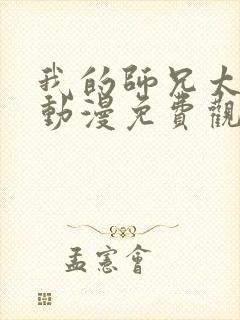 我的師兄太
動漫免費觀
孟憲會